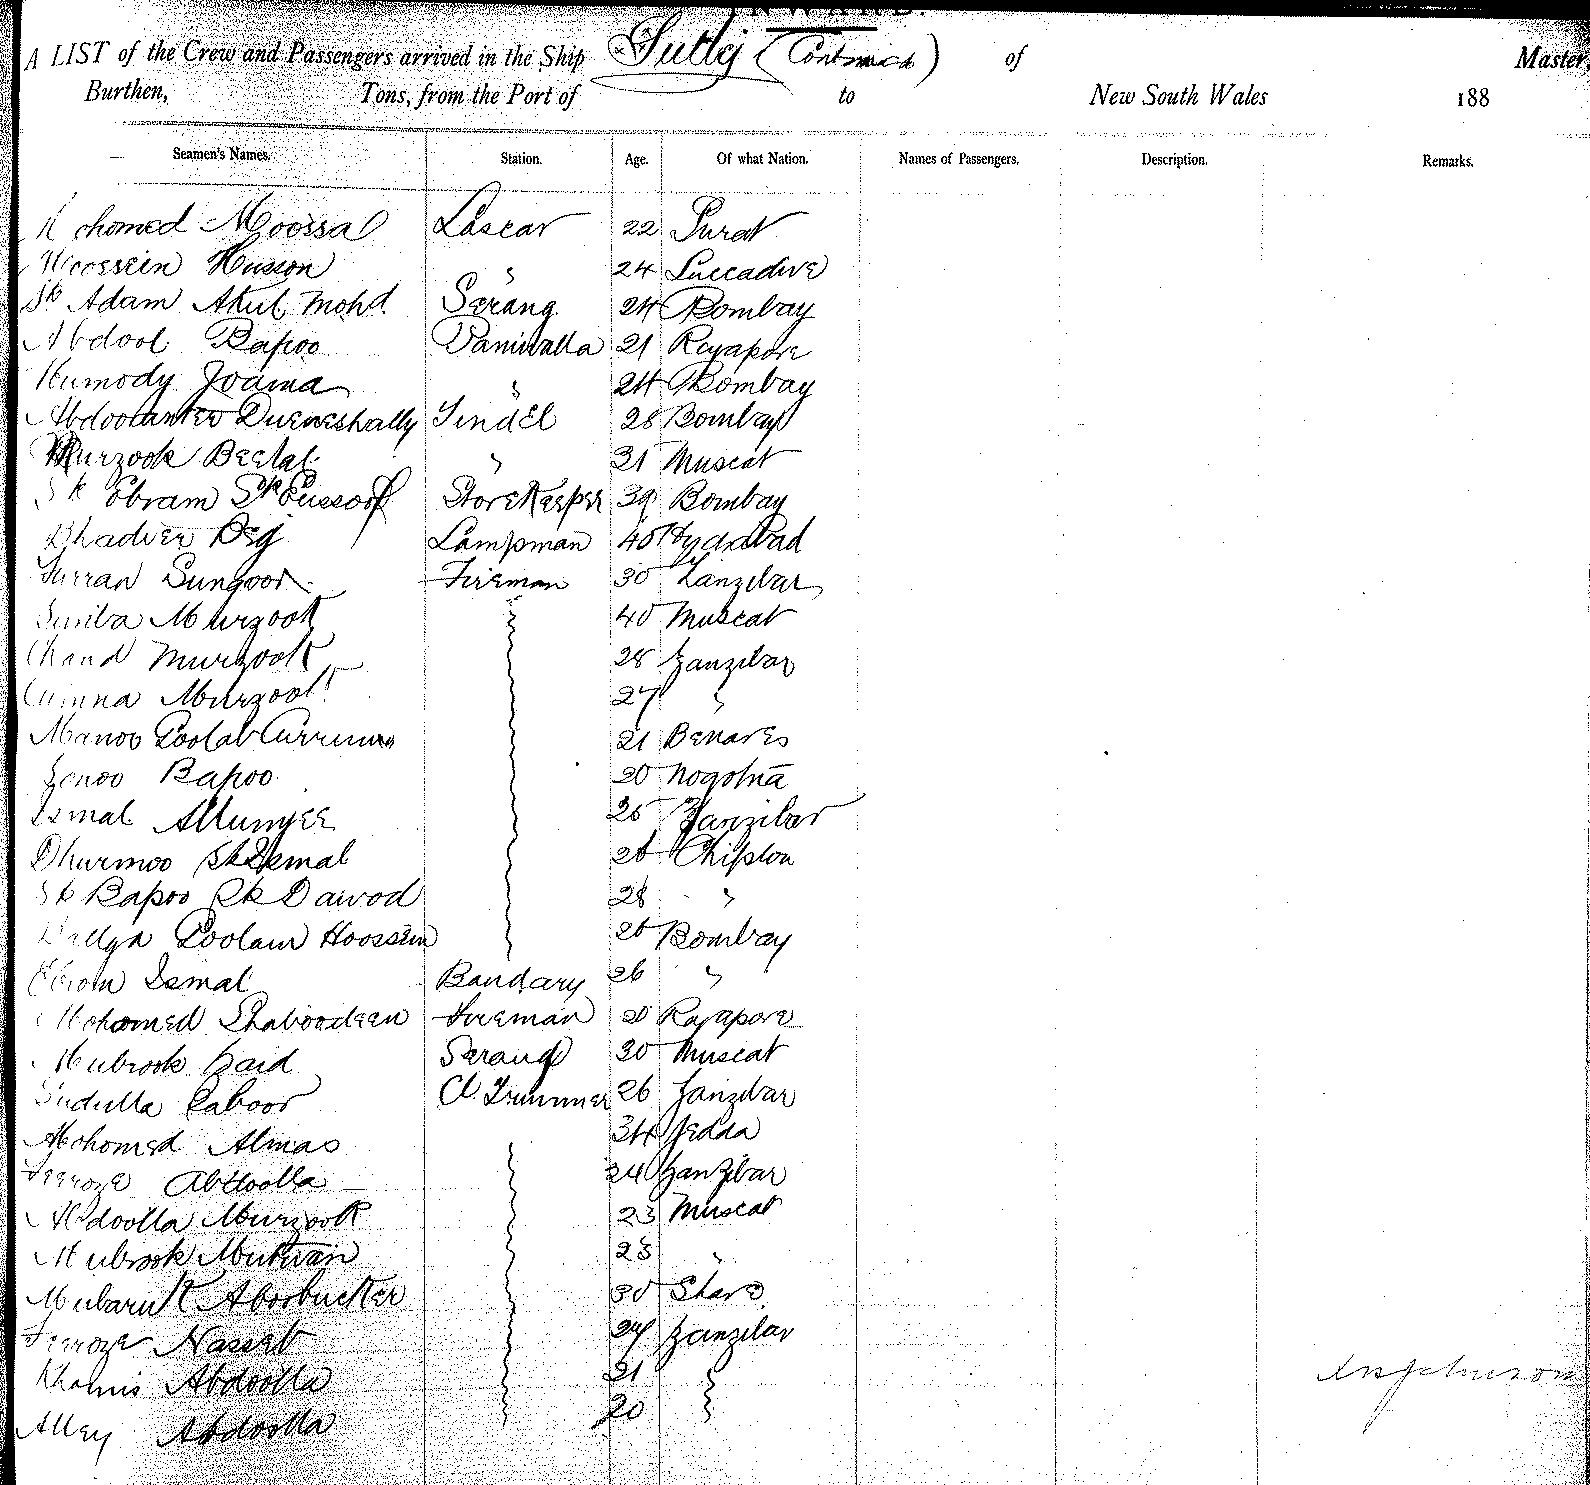 A LIST of the Crew and Passengers arrived in the Ship Sutlej (Continued) of Master,
Burthen, Tons, from the Port of to New South Wales 188
Seamen's Names. Station. Age. Of what Nation. Names of Passengers. Description. Remarks.
Mohomed Moossa Lascar 22 Surat
Hoossein Husson " 24 Laccadive
Sk Adam Akul Mohd Serang 24 Bombay
Abdool Bapoo Paniwalla 21 Rajapore
Humody Joama " 24 Bombay
Tindel 28 Bombay
Murzook Beelal " 31 Muscat
Sk Ebram Sk Eussoof StoreKeeper 39 Bombay
Beg Lampman 40 Hydrabad
Furran Sungoor Fireman 30 Zanzibar
Murzook 40 Muscat
Chand Murzook 28 Zanzibar
Murzook 27 "
Manoo Goolab 21 Benares
Bapoo 20 Nogotna
Esmal 25 Zanzibar
Dhurmoo Sk Esmal 26 Chiplon
Sk Bapoo Sk Dawood 28 "
Goolam Hoossein 26 Bombay
Ebrom Esmal Bandary 26 "
Mohomed Shaboodeen Fireman 20 Rajapore
Mubrook Said Serang 30 Muscat
Sudulla Saboor Cl. Trimmer 26 Zanzibar
Mohomed Almas 34 Jedda
Feeroze Abdoolla 24 Zanzibar
Abdoolla Murzook 23 Muscat
Mubrook 23 "
Mubaruk Aboobucker 30
Feeroze Nasseb 24 Zanzibar
Khamis Abdoolla 21
Alley Abdoolla 20